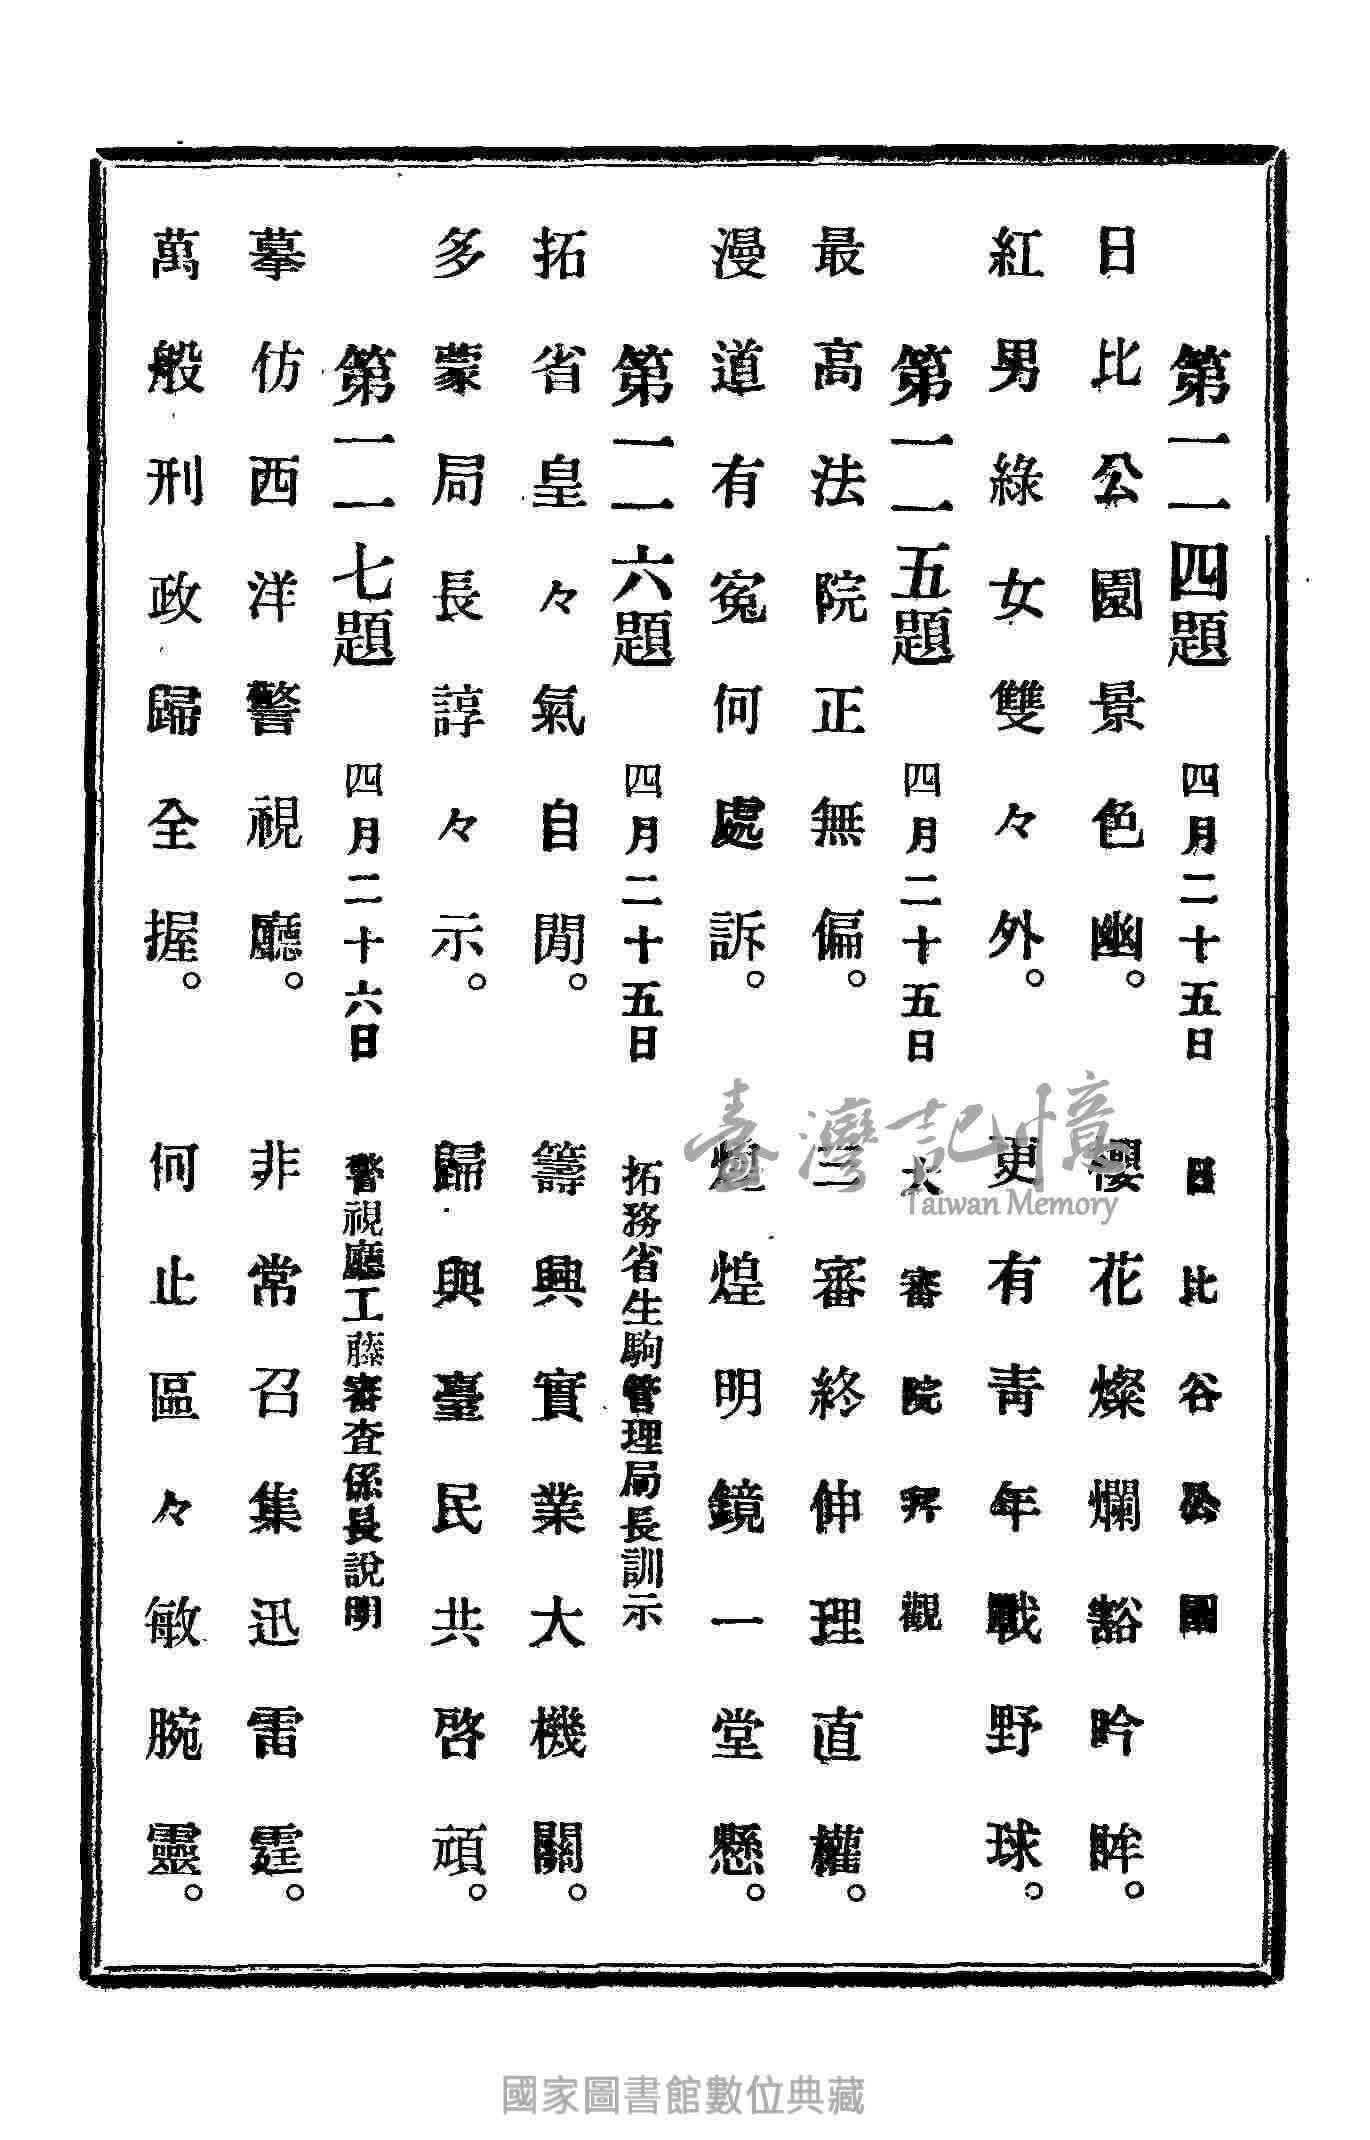 第一一四題　四月二十五日　日比谷公園
日比公園景色幽。櫻花燦爛豁吟眸。
紅男綠女雙々外。更有青年戰野球。
第一一五題　四月二十五日　大審院拜觀
最高法院正無偏。三審終伸理直權。
漫道有寃何處訴。煌明鏡一堂懸。
第一一六題　四月二十五日　拓務省生駒管理局長訓示
拓省皇々氣自閒。籌興實業大機關。
多蒙局長諄々示。歸與臺民共啓頑。
第一一七題　四月二十六日　警視廳工藤審査係長說明
摹仿西洋警視廳。非常召集迅雷霆。
萬般刑政歸全握。何止區々敏腕靈。
臺灣記憶
Taiwan Memory
國家圖書館數位典藏